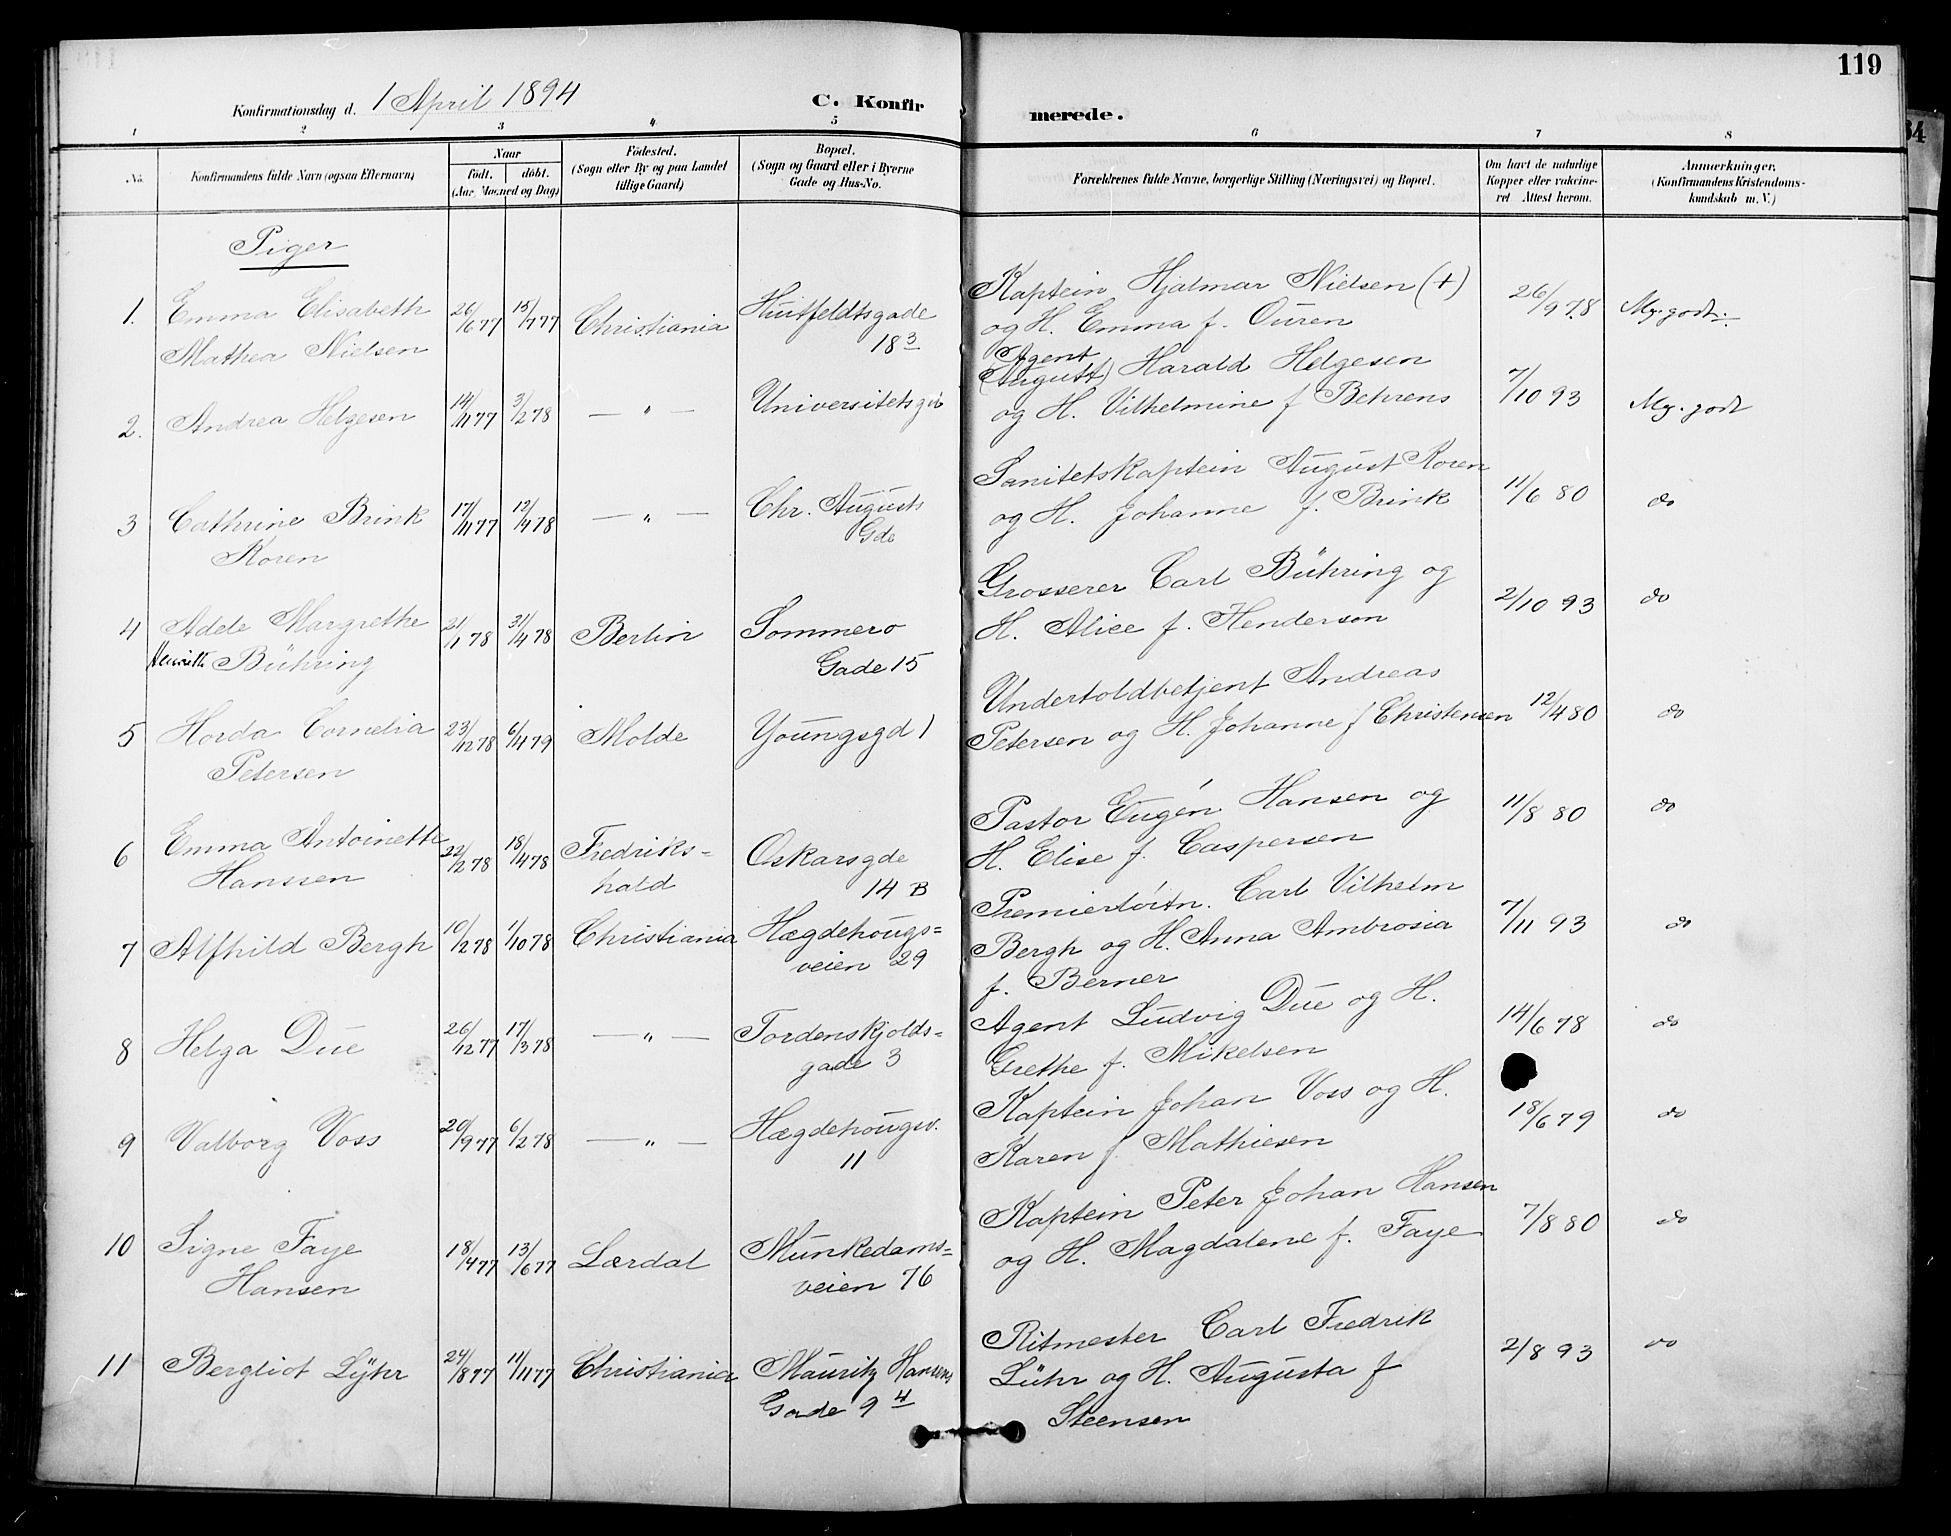 119
Konfirmationsdag d. 1 April 1894 C. Konfir merede.
1 2 3 4 5 6 7 8
No. Konfirmandens fulde Navn (ogsaa Efternavn) Naar født. døbt. (Aar, Maaned og Dag) Fødested. (Sogn eller By og paa Landet tillige Gaard) Bopæl. (Sogn og Gaard eller i Byerne Gade og Hus-No. Forældrenes fulde Navne, borgerlige Stilling (Næringsvei) og Bopæl. Om havt de naturlige Kopper eller vaccineret Attest herom. Anmærkninger. (Konfirmandens Kristendomskundskab m. V.)
Piger
1. Emma Elisabeth 26/6 77 15/7 77 Christiania Huitfeldtsgade Kaptein Hjalmar Nielsen (+) 26/9 78 Mg. godt.
Mathea Nielsen 18 3 og H. Emma f. Ouren
Agent
(August) Harald Helgesen
2. Andrea Helgesen 14/11 77 3/2 78 — " — Universitetsgd og H. Vilhelmine f Behrens 7/10 93 Mg. godt
3 Cathrine Brink 17/11 77 12/4 78 — " — Chr. Augusts Sanitetskaptein August Koren 11/6 80 do
Koren Gde og H. Johanne f. Brink
4 Adele Margrethe 21/1 78 31/4 78 Berlin Sommero Grosserer Carl Bühring og 2/10 93 do
Henriette Bühring Gade 15 H. Alice f. Henderson
5 Horda Cornelia 23/12 78 6/4 79 Molde Youngsgd 1 Undertoldbetjent Andreas 12/4 80 do
Petersen Petersen og H. Johanne f Christensen
6 Emma Antoinette 22/2 78 18/4 78 Fredriks= Oskarsgde Pastor Eugén Hansen og 11/8 80 do
Hanssen hald 14 B H. Elise f. Caspersen
7 Alfhild Bergh 10/2 78 1/10 78 Christiania Hægdehougs= Premierløitn. Carl Vilhelm 7/11 93 do
veien 29 Bergh og H. Anna Ambrosia
f. Berner
8 Helga Due 26/12 77 17/3 78 — " — Tordenskjolds= Agent Ludvig Due og H. 14/6 78 do
gade 3 Grethe f. Mikelsen
9 Valborg Voss 20/9 77 6/2 78 — " — Hægdehougsv. Kaptein Johan Voss og H. 18/6 79 do
11 Karen f Mathiesen
10 Signe Faye 18/4 77 13/6 77 Lærdal Munkedams= Kaptein Peter Johan Hansen 7/8 80 do
Hansen veien 76 og H. Magdalene f. Faye
11 Bergliot Lÿhr 24/8 77 11/11 77 Christiania Mauritz Hansens Ritmester Carl Fredrik 2/8 93 do
Gade 9 4 Lühr og H. Augusta f
Steensen